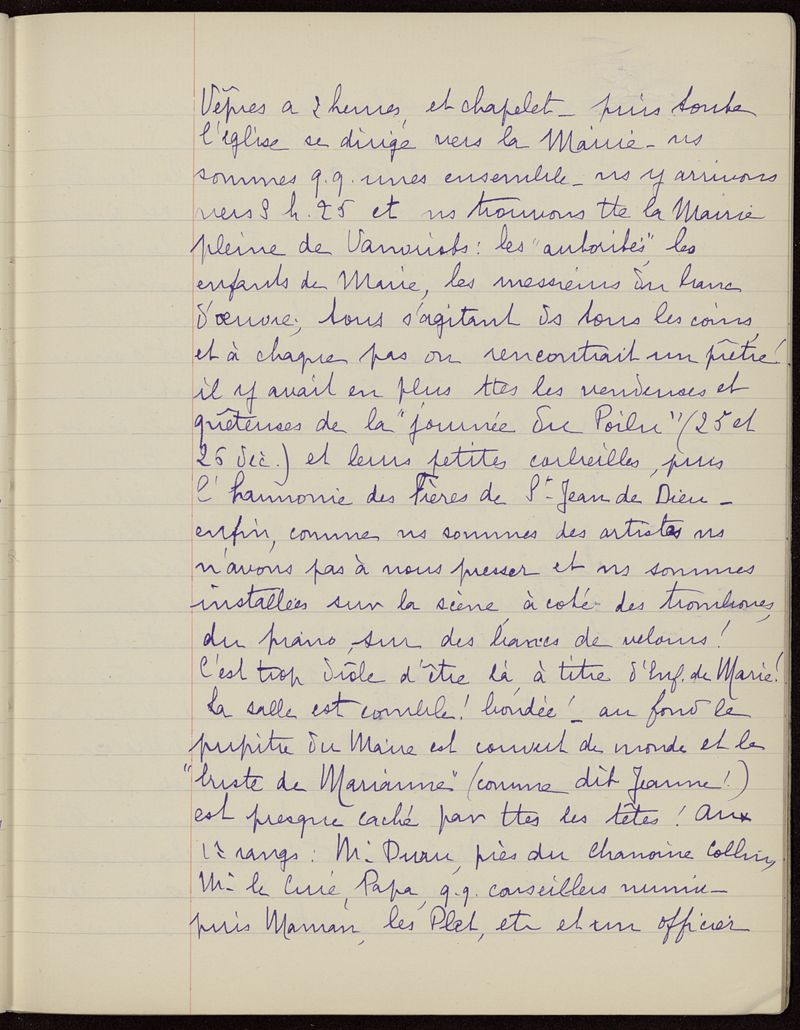 Vêpres a 2 heures, et chapelet _ puis toute
l'église se dirige vers la Mairie _ ns
sommes q.q. unes ensemble _ ns y arrivons
vers 3 h. 25 et ns trouvons tte la Mairie
pleine de Vanvistes : les "autorités", les
enfants de Marie, les messieurs du banc
d'œuvre, tous s'agitant ds tous les coins,
et à chaque pas on rencontrait un prêtre !
il y avait en plus ttes les vendeuses et
quêteuses de la "journée du Poilu" (25 et
26 déc.) et leurs petites corbeilles, puis
l'harmonie des Frères de St Jean de Dieu _
enfin, comme ns sommes des artistes ns
n'avons pas à nous presser et ns sommes
installées sur la scène, à coté des trombones,
du piano, sur des bancs de velours !
C'est trop drôle d'être là, à titre d'Enf. de Marie !
La salle est comble ! bondée ! _ au fond le
pupitre du Maire est couvert de monde et le
"buste de Marianne" (comme dit Jeanne !)
est presque caché par ttes les têtes ! Aux
1r rangs : Mr Duru, près du Chanoine Collin,
Mr le Curé, Papa, q.q. conseillers munic _
puis Maman, les Plet, etc et un officier